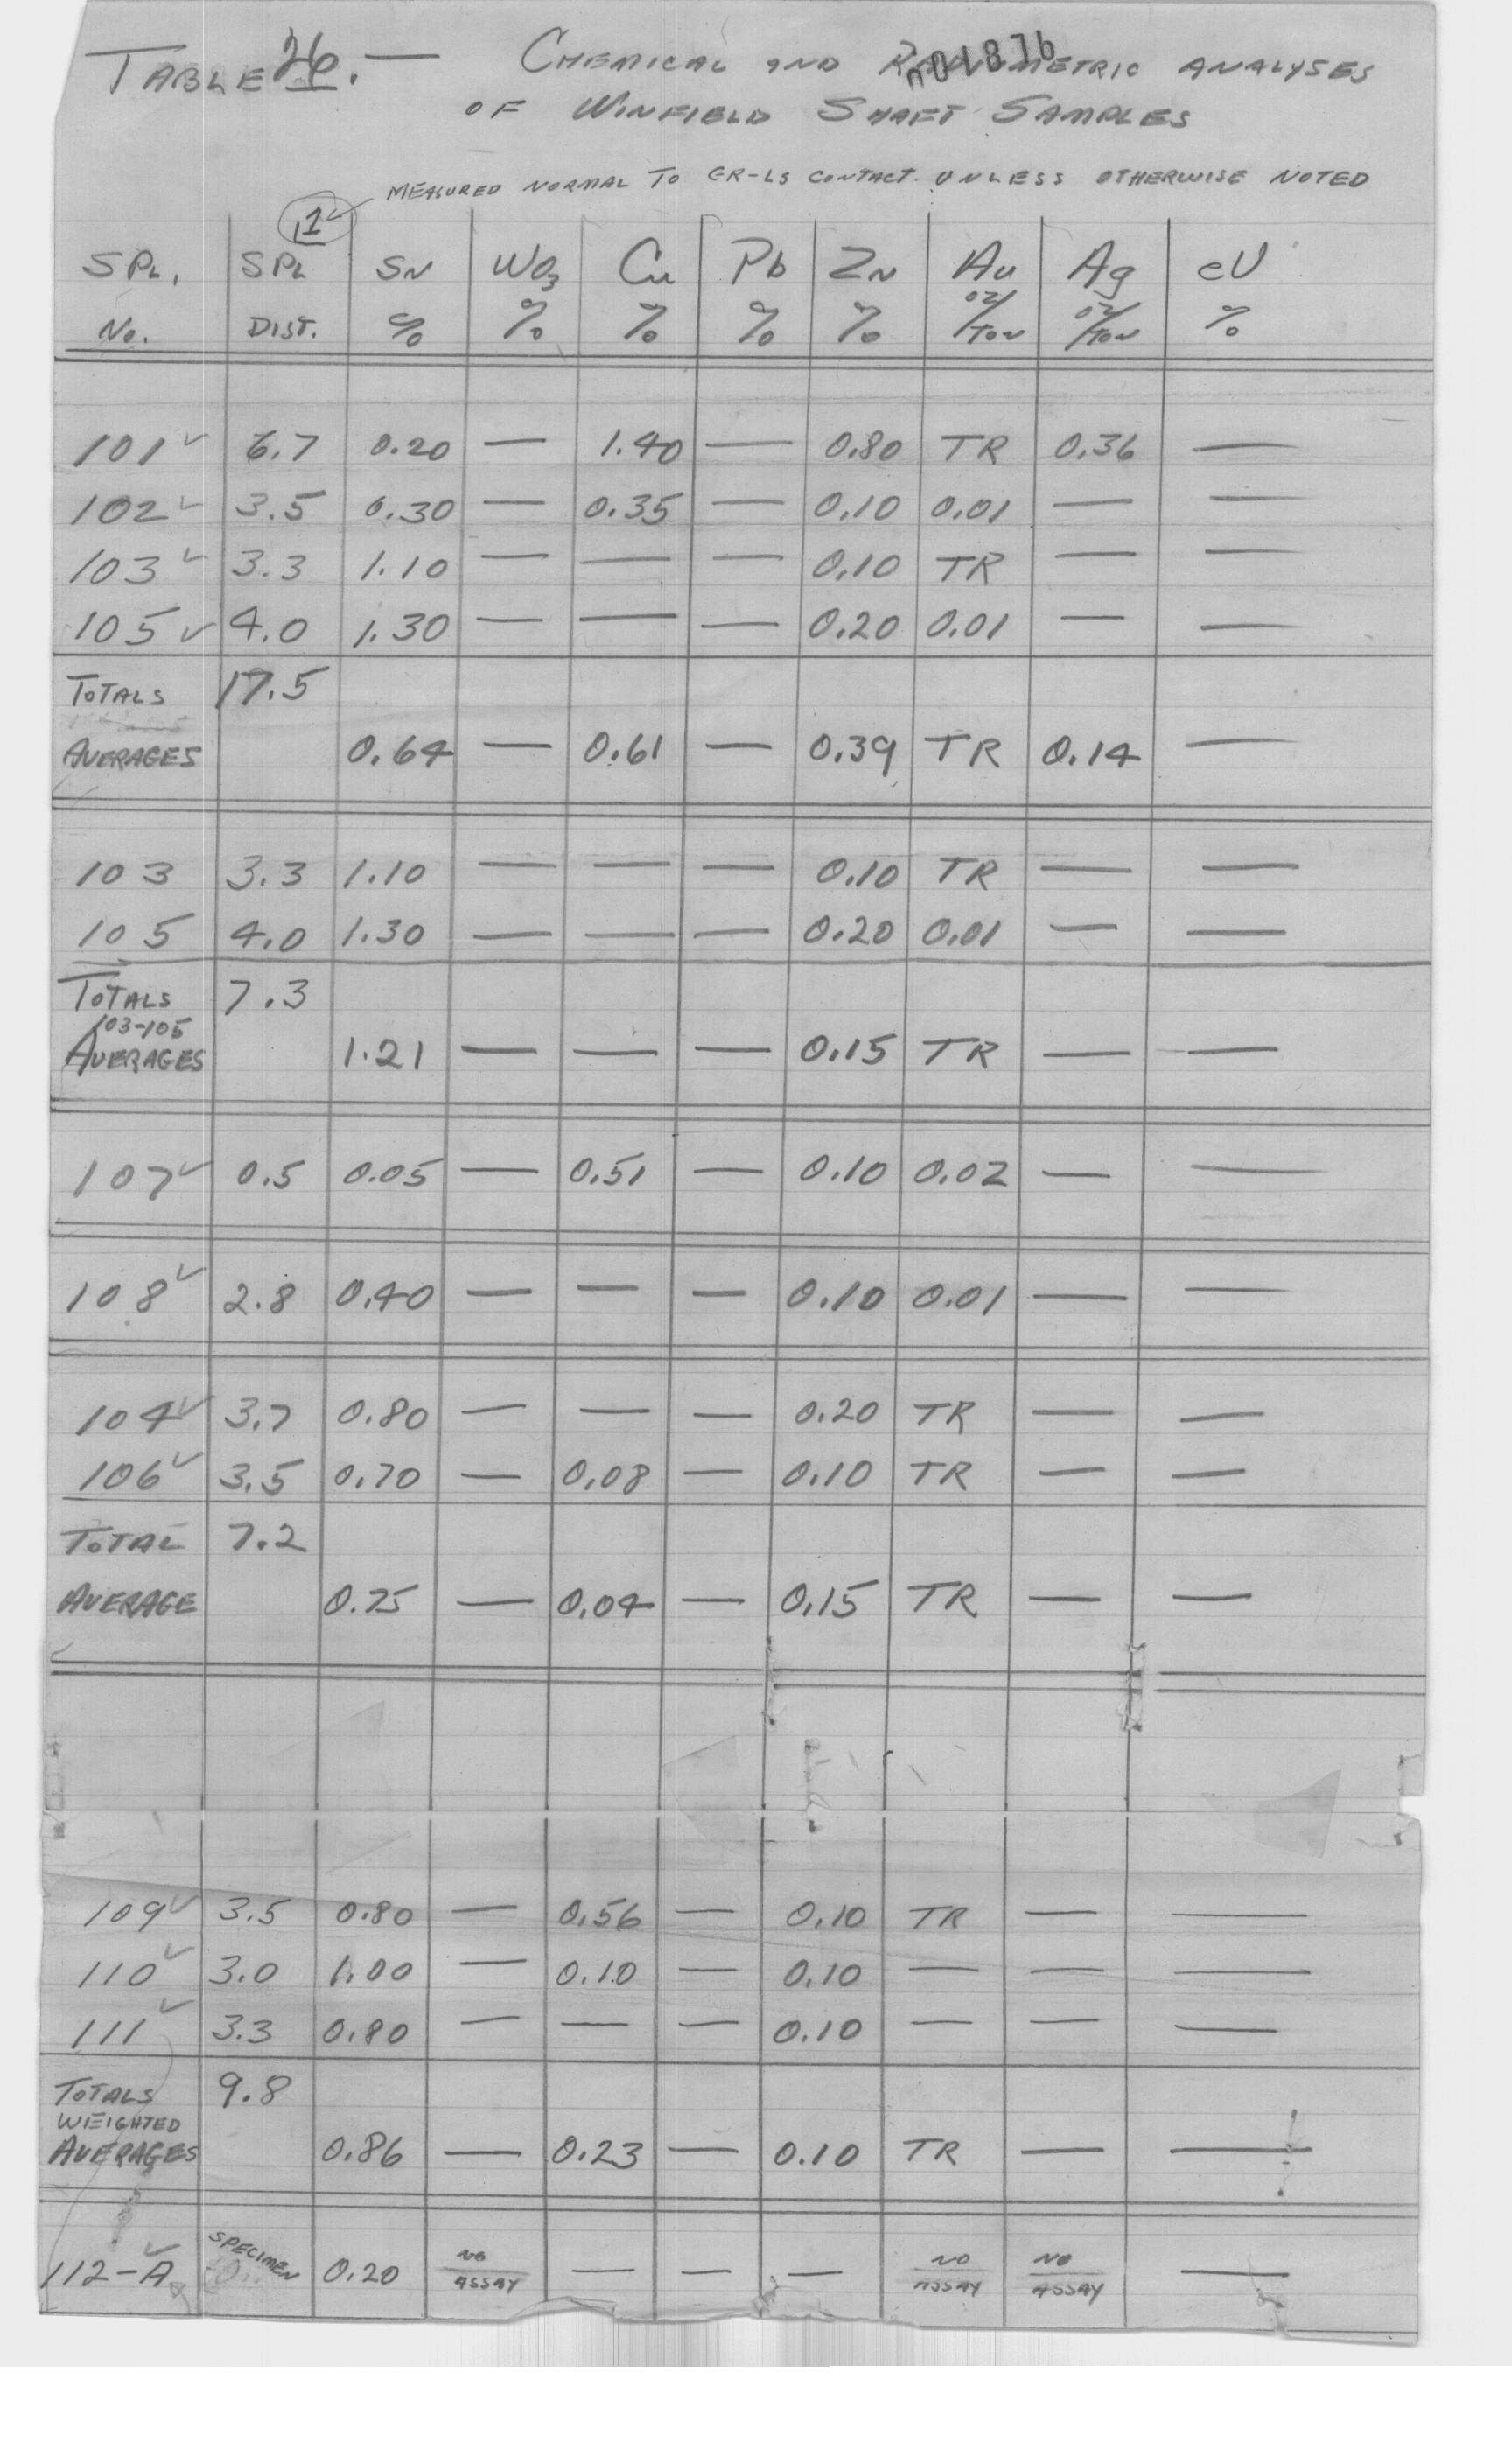 TABLE 26. — CHEMICAL AND RADIOMETRIC ANALYSES
OF WINFIELD SHAFT SAMPLES
1 MEASURED NORMAL TO GR-LS CONTACT UNLESS OTHERWISE NOTED
SPL. SPL SN WO3 Cu Pb ZN Au Ag eU
No. DIST. % % % % % oz/TON oz/TON %
101 ✓ 6.7 0.20 — 1.40 — 0.80 TR 0.36 —
102 ✓ 3.5 0.30 — 0.35 — 0.10 0.01 — —
103 ✓ 3.3 1.10 — — — 0.10 TR — —
105 ✓ 4.0 1.30 — — — 0.20 0.01 — —
TOTALS 17.5
AVERAGES 0.64 — 0.61 — 0.39 TR 0.14 —
103 3.3 1.10 — — — 0.10 TR — —
105 4.0 1.30 — — — 0.20 0.01 — —
TOTALS 7.3
103-105
AVERAGES 1.21 — — — 0.15 TR — —
107 ✓ 0.5 0.05 — 0.51 — 0.10 0.02 — —
108 ✓ 2.8 0.40 — — — 0.10 0.01 — —
104 ✓ 3.7 0.80 — — — 0.20 TR — —
106 ✓ 3.5 0.70 — 0.08 — 0.10 TR — —
TOTAL 7.2
AVERAGE 0.75 — 0.04 — 0.15 TR — —
109 ✓ 3.5 0.80 — 0.56 — 0.10 TR — —
110 ✓ 3.0 1.00 — 0.10 — 0.10 — — —
111 ✓ 3.3 0.80 — — — 0.10 — — —
TOTALS 9.8
WEIGHTED
AVERAGES 0.86 — 0.23 — 0.10 TR — —
112-A ✓ SPECIMEN 0.20 NO ASSAY — — — NO ASSAY NO ASSAY —